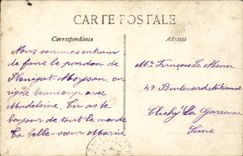 CARTE POSTALE
Correspondance
Adresse
Nous sommes entrain
de faire le pardon de
Plouégat Moysan, on
rigole beaucoup avec
Madeleine.
bonjour de tout le monde
Ta belle-sœur Maria
Mr François Le
47 Boulevard
Clichy La Garenne
Seine